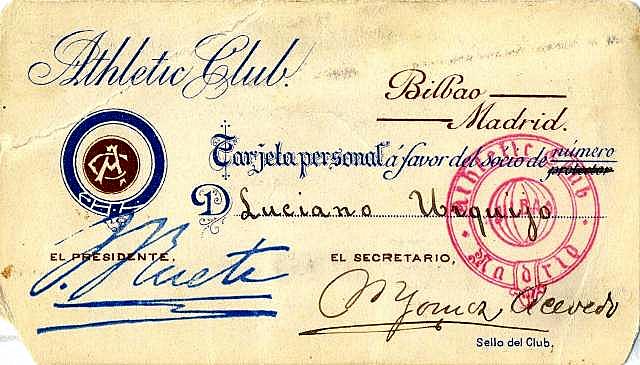 Athletic Club.
Bilbao
Madrid.
Tarjeta personal á favor del socio de número
protector
D Luciano Urquijo
Athletic Club
Madrid
EL PRESIDENTE,
EL SECRETARIO,
Gomez Acevedo
Sello del Club.